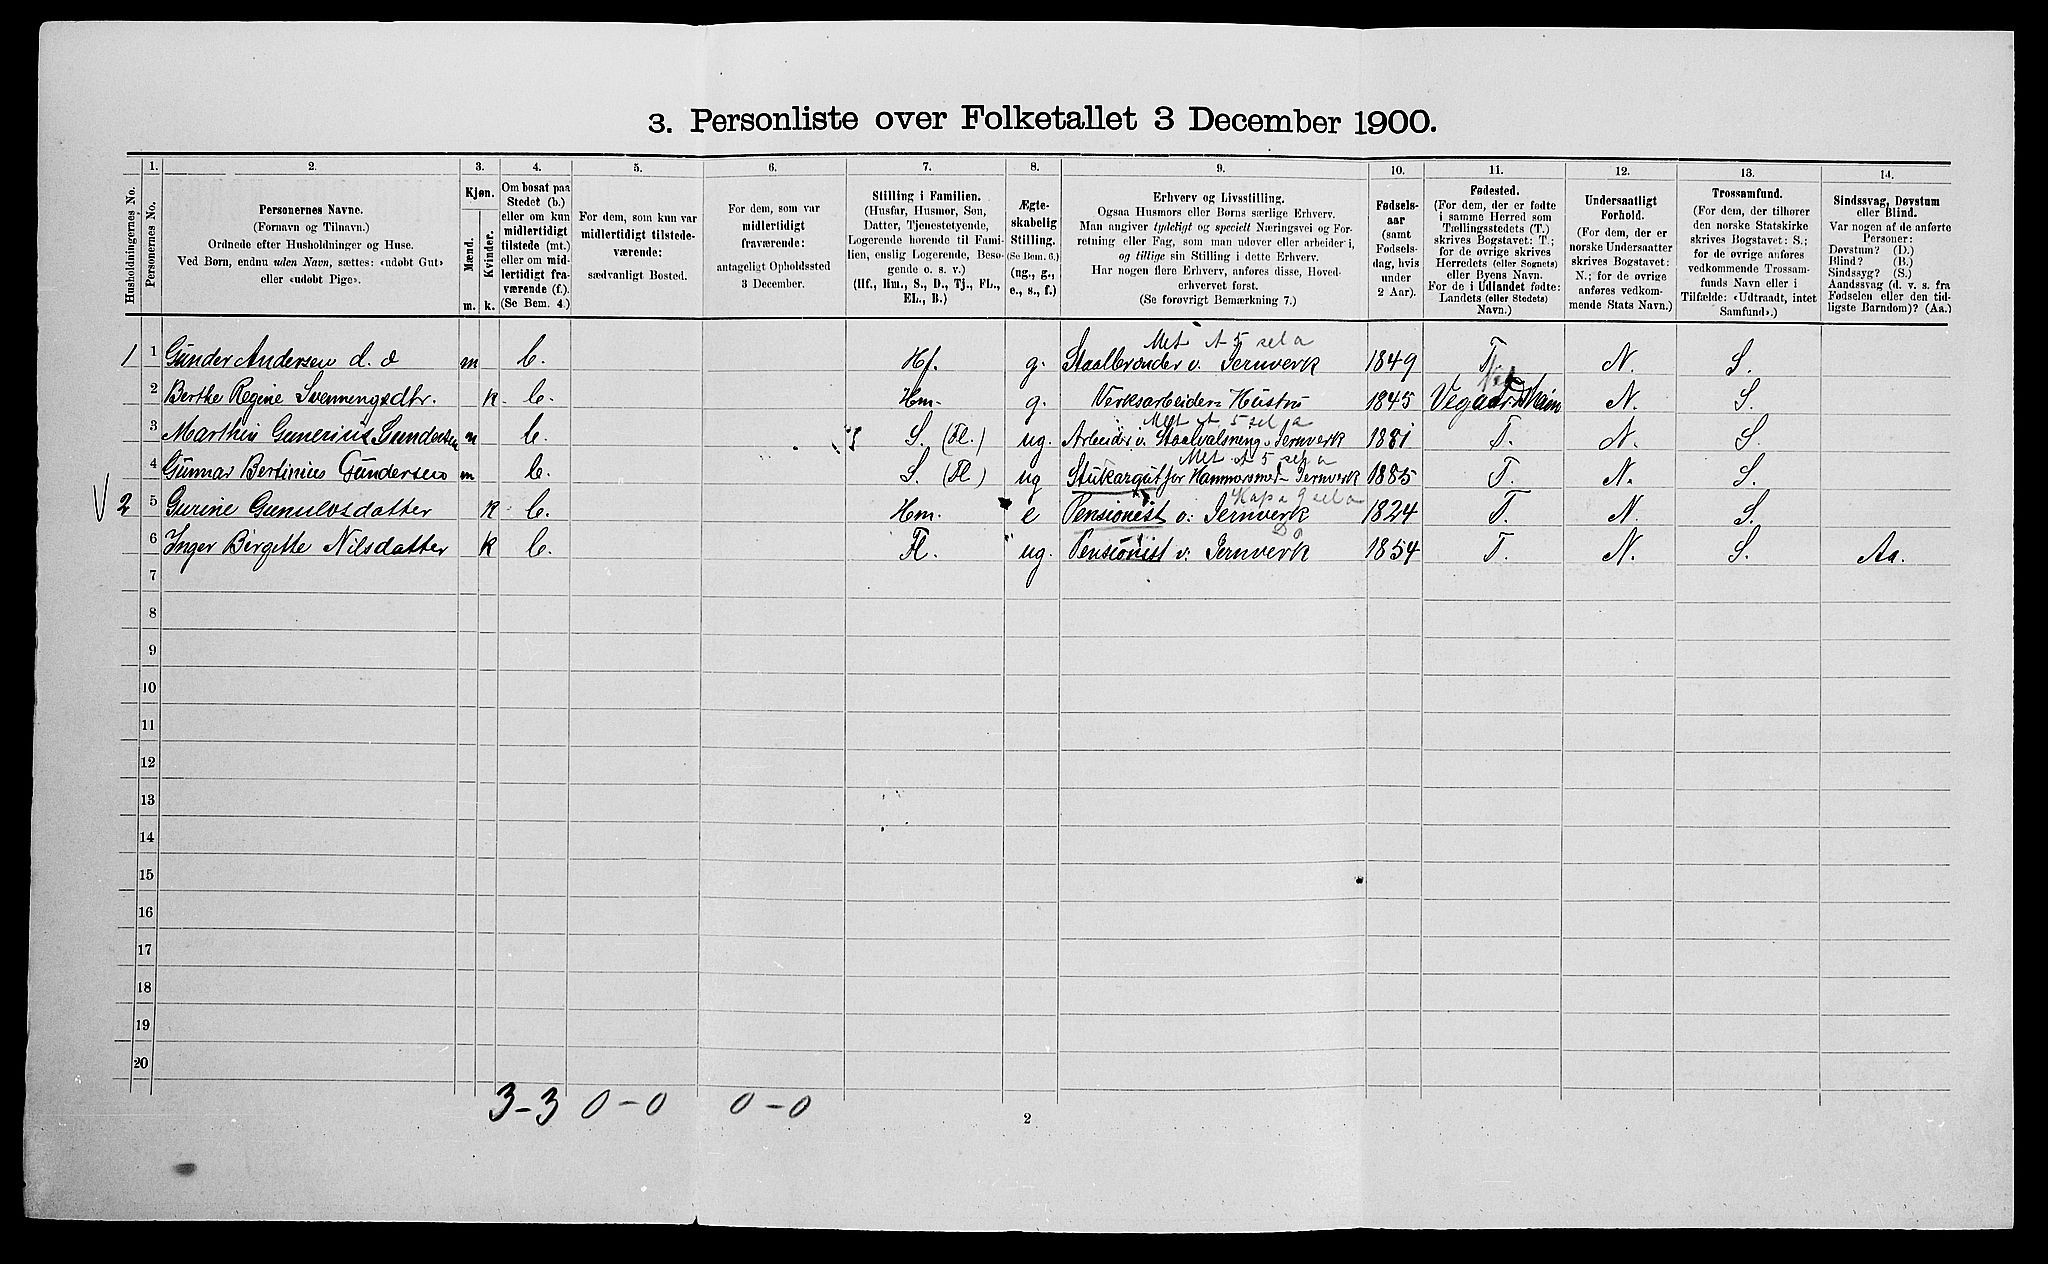 3. Personliste over Folketallet 3 December 1900.
1. 2. 3. 4. 5. 6. 7. 8. 9. 10. 11. 12. 13. 14.
Husholdningernes No.
Personernes No.
Personernes Navne.
(Fornavn og Tilnavn.)
Ordnede efter Husholdninger og Huse.
Ved Børn, endnu uden Navn, sættes: «udøbt Gut»
eller «udøbt Pige».
Kjøn.
Mænd. Kvinder.
m. k.
Om bosat paa
Stedet (b.)
eller om kun
midlertidigt
tilstede (mt.)
eller om mid-
lertidigt fra-
værende (f.).
(Se Bem. 4.)
For dem, som kun var
midlertidigt tilstede-
værende:
sædvanligt Bosted.
For dem, som var
midlertidigt
fraværende:
antageligt Opholdssted
3 December.
Stilling i Familien.
(Husfar, Husmor, Søn,
Datter, Tjenestetyende,
Logerende hørende til Fami-
lien, enslig Logerende, Besø-
gende o. s. v.)
(Hf., Hm., S., D., Tj., FL.,
EL., B.)
Ægte-
skabelig
Stilling.
(Se Bem. 6.)
(ug., g.,
e., s., f.)
Erhverv og Livsstilling.
Ogsaa Husmors eller Børns særlige Erhverv.
Man angiver tydeligt og specielt Næringsvei og For-
retning eller Fag, som man udøver eller arbeider i,
og tillige sin Stilling i dette Erhverv.
Har nogen flere Erhverv, anføres disse, Hoved-
erhvervet først.
(Se forøvrigt Bemærkning 7.)
Fødsels-
aar
(samt
Fødsels-
dag, hvis
under
2 Aar).
Fødested.
(For dem, der er fødte
i samme Herred som
Tællingsstedets (T.)
skrives Bogstavet: T.;
for de øvrige skrives
Herredets (eller Sognets)
eller Byens Navn.
For de i Udlandet fødte:
Landets (eller Stedets)
Navn.)
Undersaatligt
Forhold.
(For dem, der er
norske Undersaatter
skrives Bogstavet:
N.; for de øvrige
anføres vedkom-
mende Stats Navn.)
Trossamfund.
(For dem, der tilhører
den norske Statskirke
skrives Bogstavet: S.;
for de øvrige anføres
vedkommende Trossam-
funds Navn eller i
Tilfælde: «Udtraadt, intet
Samfund».)
Sindssvag, Døvstum
eller Blind.
Var nogen af de anførte
Personer:
Døvstum? (D.)
Blind? (B.)
Sindssyg? (S.)
Aandssvag (d. v. s. fra
Fødselen eller den tid-
ligste Barndom)? (Aa.)
Met A 5 sel a
1 1 Gunder Andersen d. æ m b. Hf. g. Staalbrænder v. Jernverk 1849 T. N. S.
2 Berthe Regine Svenningsdtr. k b. Hm. g. Verksarbeiders Hustru 1845 N. S.
Met A 5 sel a
3 Marthin Gunerius Gundersen m b. S. (Fl.) ug. Arbeider v. Staalvalsning v. Jernverk 1881 T. N. S.
Met A 5 sel a
4 Gunnar Bertinius Gundersen m b. S. (Fl) ug Jernverk 1885 T. N. S.
Kap a 9 sel a
2 5 Gurine Gunulvsdatter k b. Hm. e Pensionist v. Jernverk 1824 T. N. S.
Do
6 Inger Birgitte Nilsdatter k b. Fl. ug. Pensionist v. Jernverk 1854 T. N. S. Aa.
7
8
9
10
11
12
13
14
15
16
17
18
19
20
3-3 0-0 0-0
2